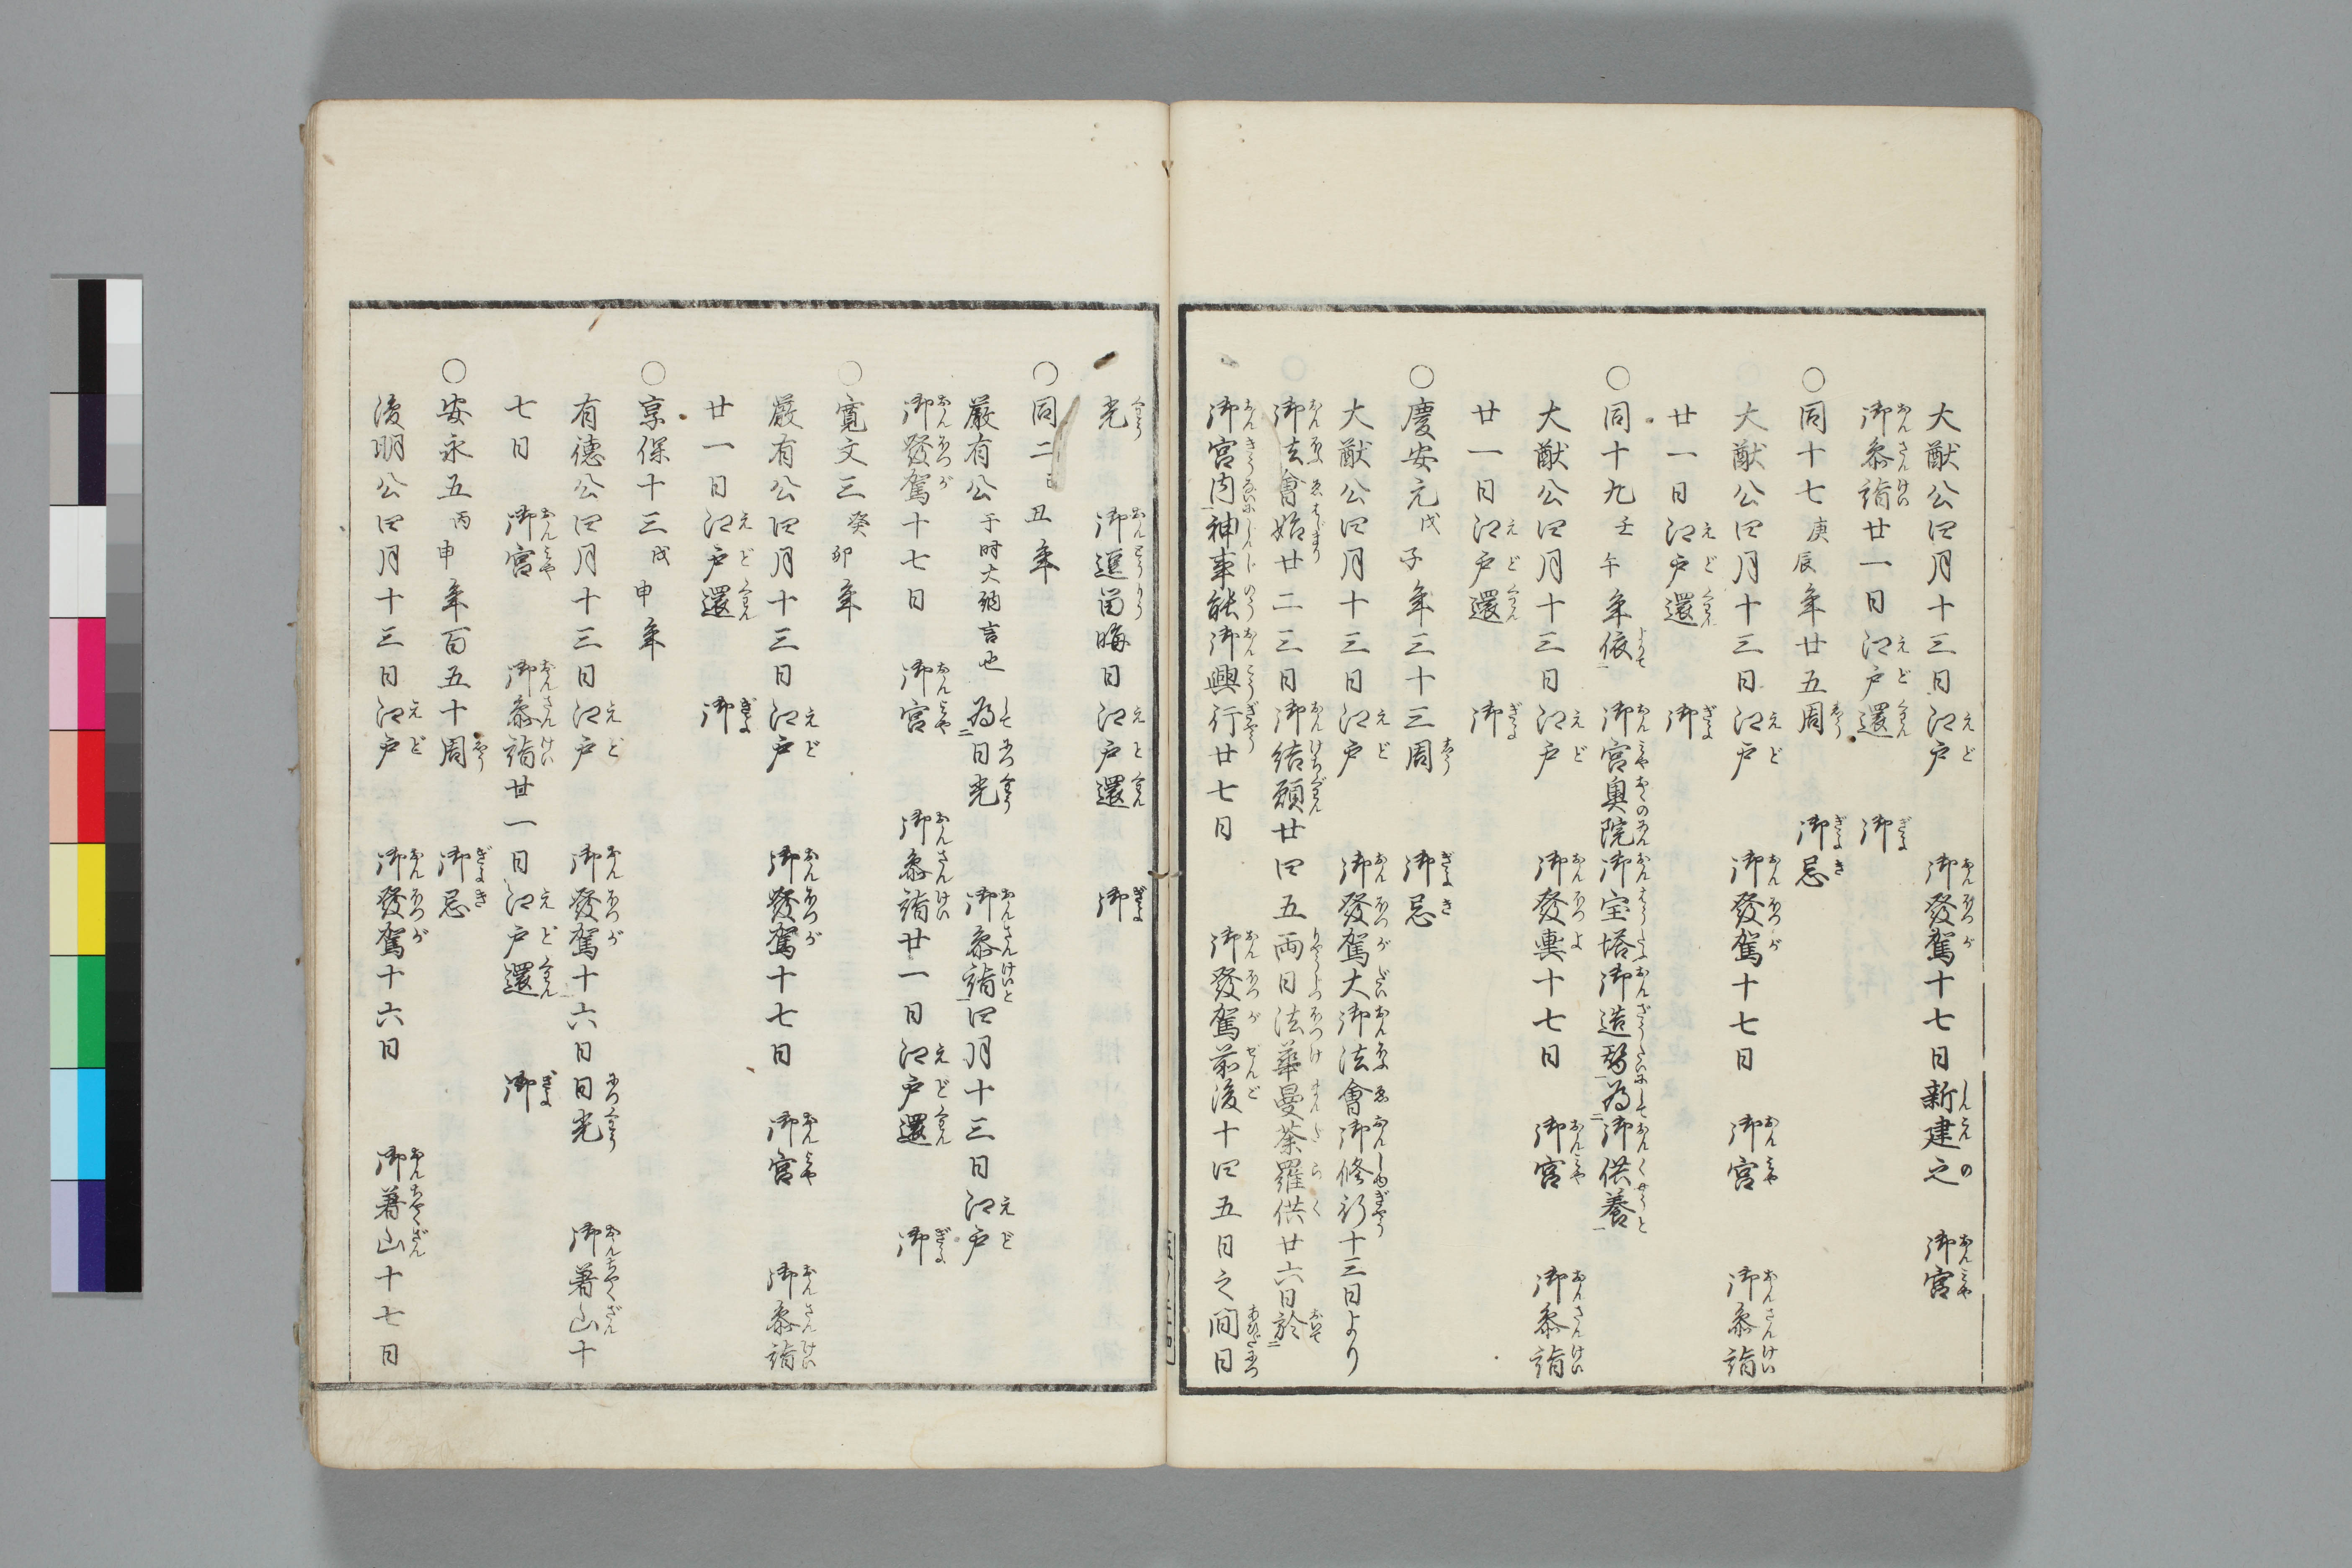 大猷公四月十三日江戸　御發駕十七日新建之　御宮
御叅詣廿一日江戸還　御
○同十七庚辰年廿五周　御忌
大猷公四月十三日江戸　御發駕十七日　御宮　御叅詣
廿一日江戸還　御
○同十九壬午年依　御宮奥院御宝塔御造替為御供養
大猷公四月十三日江戸　御發輿十七日　御宮　御叅詣
廿一日江戸還　御
○慶安元戊子年三十三周　御忌
大猷公四月十三日江戸　御發駕大御法會御修行十三日より
御法會始廿二三日御結願廿四五両日法華曼荼羅供廿六日於
御宮内神事能御興行廿七日　御發駕前後十四五日之間日
光　御逗留晦日江戸還　御
○同二己丑年
嚴有公于時大納言也　為日光　御叅詣四月十三日江戸
御發駕十七日　御宮　御叅詣廿一日江戸還　御
○寛文三癸卯年
嚴有公四月十三日江戸　御發駕十七日　御宮　御叅詣
廿一日江戸還　御
○享保十三戊申年
有徳公四月十三日江戸　御發駕十六日日光　御着山十
七日　御宮　御叅詣廿一日江戸還　御
○安永五丙申年百五十周　御忌
浚明公四月十三日江戸　御發駕十六日　御着山十七日